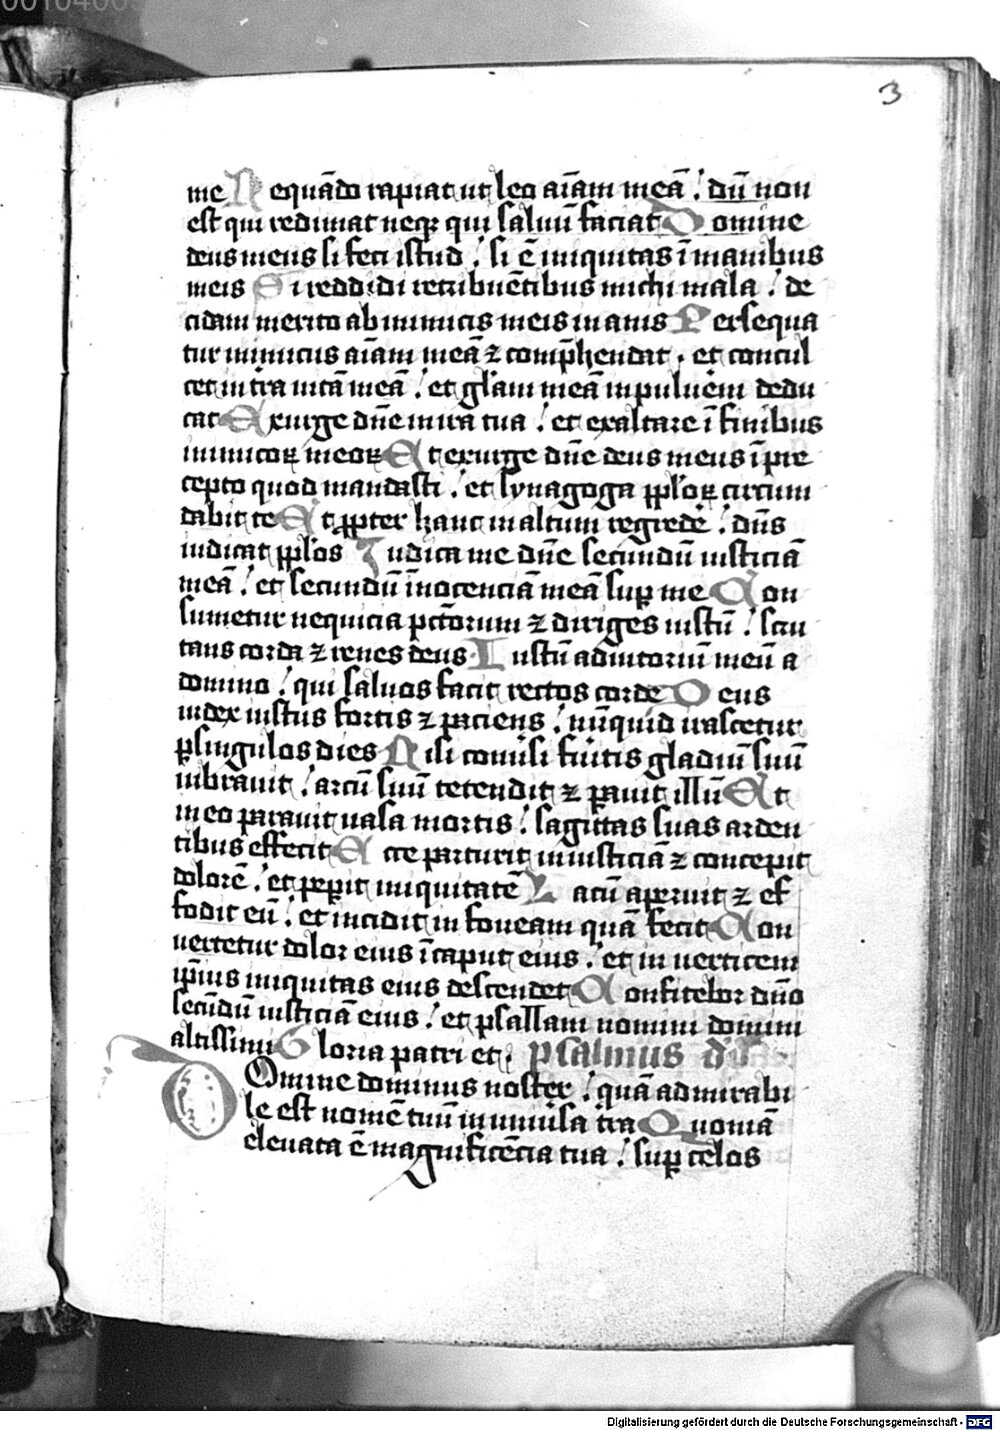 3
me Nequādo rapiat ut leo aīam meā / dū non
est qui redimat neqꝫ qui saluū faciat Domine
deus meus si feci istud / si ē iniquitas ī manibus
meis Si reddidi retribuētibus michi mala / de
cidam merito ab inimicis meis inanis Persequa
tur inimicus aīam meā ⁊ comp̄hendat · et concul
cet in tra uitā meā / et gl̄am meā in puluēm dedu
cat Exurge dn̄e in ira tua / et exaltare ī finibus
inimicoꝝ meoꝝ Et exurge dn̄e deus meus ī pre
cepto quod mandasti / et synagoga ppl̓oꝝ circum
dabit te Et ꝓpter hanc in altum regredē / dn̄s
iudicat ppl̓os Iudica me dn̄e secundū iusticiā
meā / et secundū īnocenciā meā suꝑ me Con
sumetur nequicia pctōrum ⁊ diriges iustū / scru
tans corda ⁊ renes deus Iustū adiutoriū meū a
domino / qui saluos facit rectos corde Deus
iudex iustus fortis ⁊ paciens / nūquid irascetur
ꝑ singulos dies Nisi conuīsi fuītis gladiū suū
uibrauit / arcū suū tetendit ⁊ ꝑauit illū Et
in eo parauit uasa mortis / sagittas suas arden
tibus effecit Ecce parturit iniusticiā ⁊ concepit
dolorē / et peꝑit iniquitatē Lacū aperuit ⁊ ef
fodit eū / et incidit in foueam quā fecit Con
uertetur dolor eius ī caput eius / et in uerticem
ip̄ius iniquitas eius descendet Confitebor dn̄o
secūdū iusticiā eius / et psallam nomini domini
altissimi Gloria patri et psalmus dd
Domine dominus noster / quā admirabi
le est nomē tuū in uniūsa tr̄a Quoniā
eleuata ē magnificēcia tua / suꝑ celos
Digitalisierung gefördert durch die Deutsche Forschungsgemeinschaft - DFG